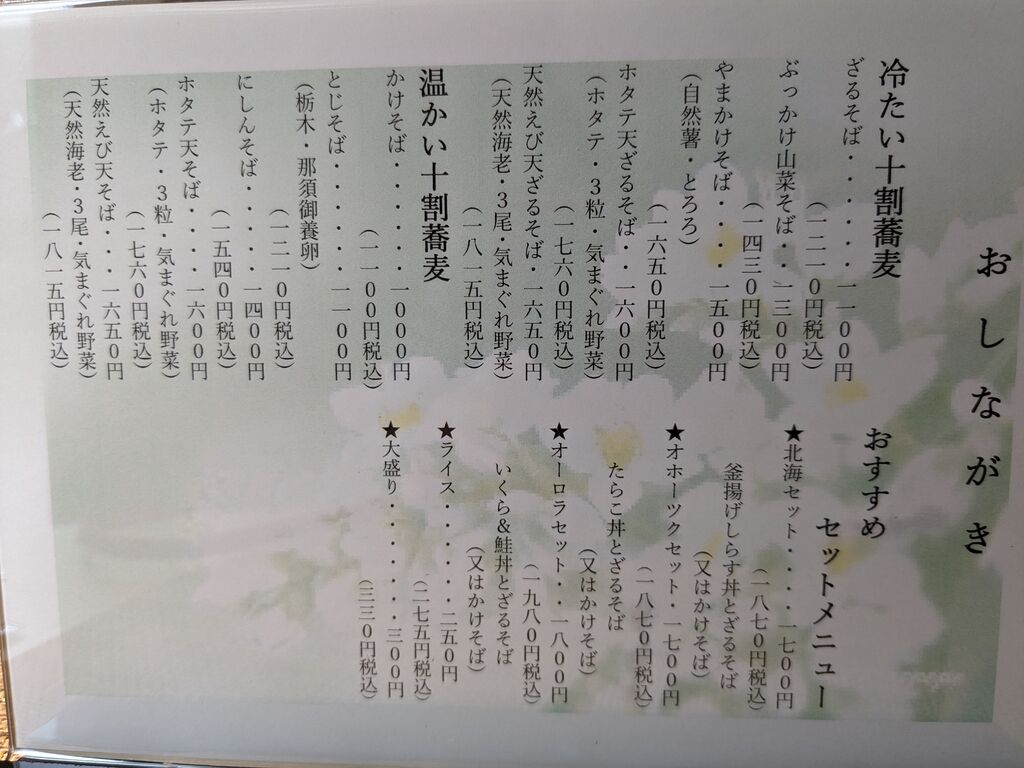 おしながき
冷たい十割蕎麦
ざるそば・・・・・一一００円
（一二一０円税込）
ぶっかけ山菜そば・・一三００円
（一四三０円税込）
やまかけそば・・・・一五００円
（自然薯・とろろ）
（一六五０円税込）
ホタテ天ざるそば・・一六００円
（ホタテ・３粒・気まぐれ野菜）
（一七六０円税込）
天然えび天ざるそば・一六五０円
（天然海老・３尾・気まぐれ野菜）
（一八一五円税込）
温かい十割蕎麦
かけそば・・・・・・一０００円
（一一００円税込）
とじそば・・・・・・一一００円
（栃木・那須御養卵）
（一二一０円税込）
にしんそば・・・・・一四００円
（一五四０円税込）
ホタテ天そば・・・・一六００円
（ホタテ・３粒・気まぐれ野菜）
（一七六０円税込）
天然えび天そば・・・一六五０円
（天然海老・３尾・気まぐれ野菜）
（一八一五円税込）
おすすめ
セットメニュー
★北海セット・・・・一七００円
（一八七０円税込）
釜揚げしらす丼とざるそば
（又はかけそば）
★オホーツクセット・一七００円
（一八七０円税込）
たらこ丼とざるそば
（又はかけそば）
★オーロラセット・・一八００円
（一九八０円税込）
いくら＆鮭丼とざるそば
（又はかけそば）
★ライス・・・・・二五０円
（二七五円税込）
★大盛り・・・・・・・三００円
（三三０円税込）